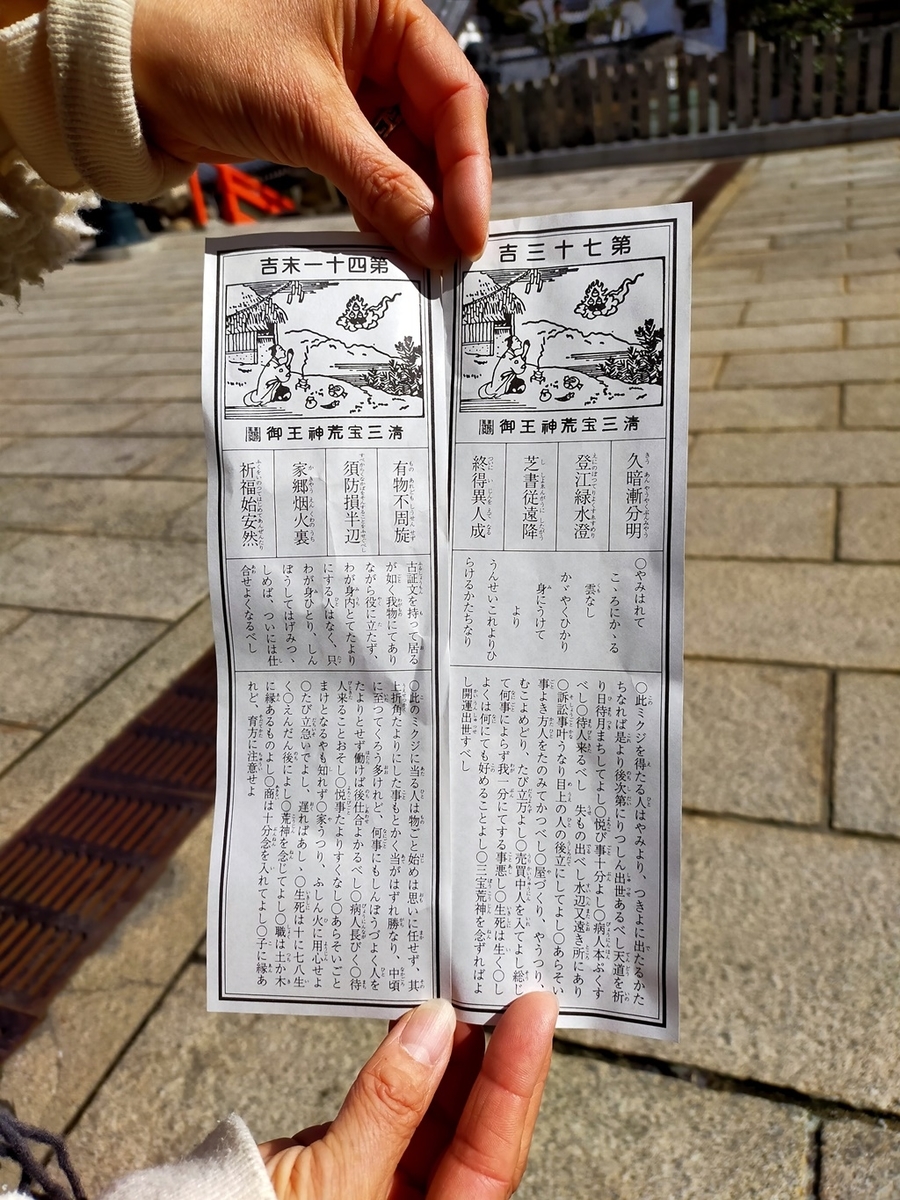 第七十三吉
清三宝荒神王御鬮
久暗漸分明
登江緑水澄
芝書従遠降
終得異人成
〇やみはれて
こゝろにかゝる
雲なし
かゞやくひかり
身にうけて
より
うんせいこれよりひ
らけるかたちなり
〇此ミクジを得たる人はやみより、つきよに出たるかた
ちなれば是より後次第にりつしん出世あるべし天道を祈
り日待月まちしてよし〇悦び事十分よし〇病人本ぷくす
べし〇待人来るべし 失もの出べし水辺又遠き所にあり
〇訴訟事叶うなり目上の人の後立にしてよし〇あらそい
事よき方人をたのみてかつべし〇屋づくり、やうつり、
むこよめどり、たび立万よし〇売買中人を入てよし総じ
て何事によらず我一分にてする事悪し〇生死は生く〇し
よくは何にても好めることよし〇三宝荒神を念ずればよ
し開運出世すべし
第四十一末吉
清三宝荒神王御鬮
有物不周旋
須防損半辺
家郷烟火裏
祈福始安然
古証文を持って居る
が如く我物にてあり
ながら役に立たず、
わが身内とてたより
にする人はなく、只
わが身ひとり、しん
ぼうしてはげみつゝ
しめば、ついには仕
合せよくなるべし
〇此のミクジに当る人は物ごと始めは思いに任せず、其
上折角たよりにした事もとかく当がはずれ勝なり、中頃
に至つてくろう多けれど、何事にもしんぼうづよく人を
たよりとせず働けば後仕合よかるべし〇病人長びく〇待
人来ることおそし〇悦事たよりすくなし〇あらそいごと
まけとなるやも知れず〇家うつり、ふしん火に用心せよ
〇たび立急いでよし、遅ればあしゝ〇生死は十に七八生
く〇えんだん後によし〇荒神を念じてよし〇職は土か木
に縁あるものよし〇商は十分念を入れてよし〇子に縁あ
れど、育方に注意せよ